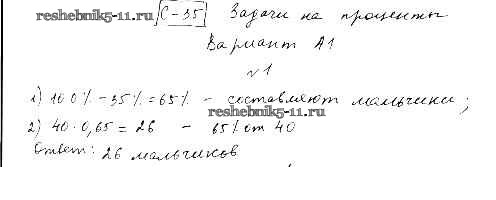 reshebnik5-11.ru С-35 Задачи на проценты
Вариант А1
№1
1) 100% - 35% = 65% - составляют мальчики;
reshebnik5-11.ru
2) 40 · 0,65 = 26 - 65% от 40
Ответ: 26 мальчиков